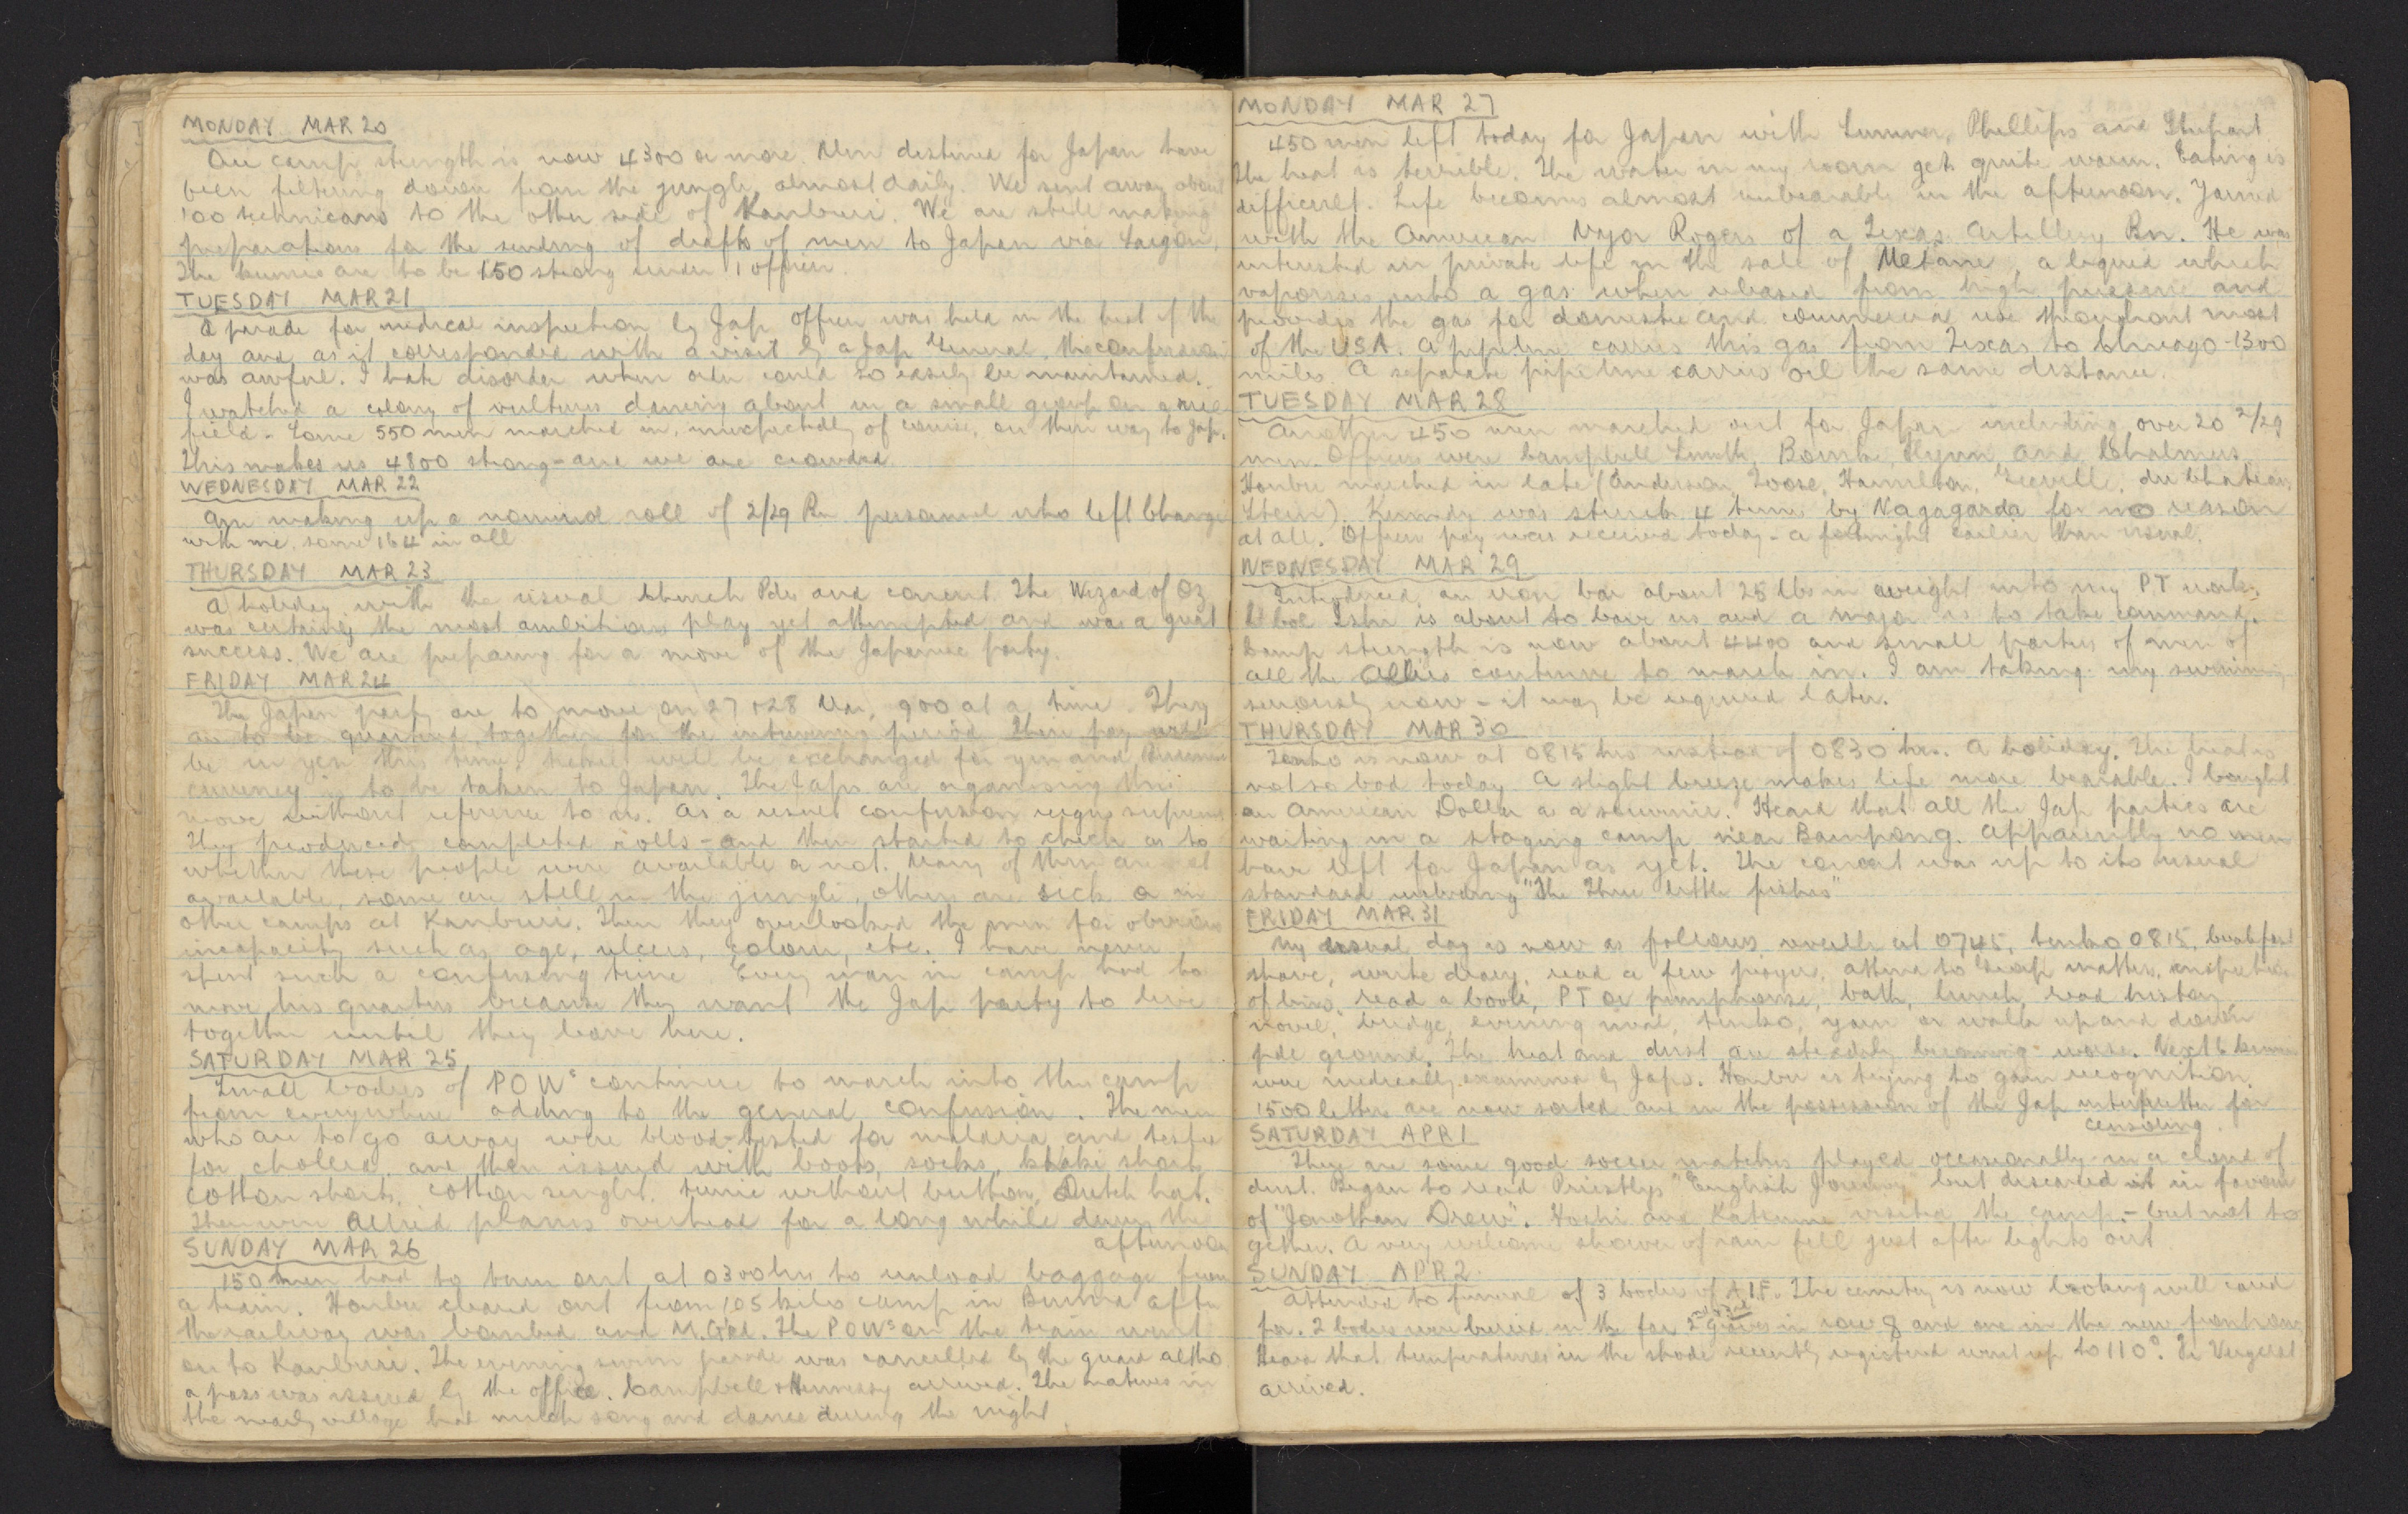 MONDAY MAR 20
Our camp strength is now 4300 or more. Men destined for Japan have
been filtering down from the jungle almost daily. We sent away about
100 technicians to the other side of Kanburi. We are still making
preparations for the sending of drafts of men to Japan via Saigon.
The kumis are to be 150 strong under 1 officer.
TUESDAY MAR 21
A parade for medical inspection by Jap officer was held in the heat of the
day and as it corresponded with a visit by a Jap General, the confusion
was awful. I hate disorder when order could so easily be maintained.
I watched a colony of vultures dancing about in a small group on a
field. Some 550 men marched in, unexpectedly of course, on their way to Jap.
This makes us 4800 strong - and we are crowded
WEDNESDAY MAR 22
Am making up a nominal roll of 2/29 Bn personnel who left Changi
with me, some 164 in all
THURSDAY MAR 23
A holiday with the usual Church Pdes and concert. The Wizard of Oz
was certainly the most ambitious play yet attempted and was a great
success. We are preparing for a move of the Japanese party.
FRIDAY MAR 24
The Japan party are to move on 27 & 28 Mar, 900 at a time. They
are to be quartered together for the intervening period. Their pay will
be in yen this time, will be exchanged for yen and Burmese
currency is to be taken to Japan. The Japs are organising this
move without reference to us. As a result confusion reigns supreme
They produced completed rolls - and then started to check as to
whether these people were available or not. Many of them are not
available, some are still in the jungle, others are sick or in
other camps at Kanburi. Then they overlooked the men for obvious
incapacity such as age, ulcers, colour, etc. I have never
spent such a confusing time. Every man in camp had to
move his quarters because they want the Jap party to live
together until they leave here.
SATURDAY MAR 25
Small bodies of POWs continue to march into this camp
from everywhere adding to the general confusion. The men
who are to go away were blood-tested for malaria and tested
for cholera and then issued with boots, socks, khaki shorts
cotton shorts, cotton singlet, tunic without buttons, Dutch hat.
There were Allied planes overhead for a long while during the
afternoon
SUNDAY MAR 26
150 men had to turn out at 0300 hrs to unload baggage from
a train. Honbu cleared out from 105 kilo camp in Burma after
the railway was bombed and M.G'ed. The POWs on the train went
on to Kanburi. The evening swim parade was cancelled by the guard altho
a pass was issued by the office. Campbell & Hennessy arrived. The natives in
the nearby village had much song and dance during the night
MONDAY MAR 27
450 men left today for Japan with Sumner, Phillips and
The heat is terrible. The water in my room gets quite warm. Eating is
difficult. Life becomes almost unbearable in the afternoon. Yarned
with the American Major Rogers of a Texas Artillery Bn. He was
interested in private life in the sale of Metane, a liquid which
vaporises into a gas when released from high pressure and
provides the gas for domestic and commercial use throughout most
of the USA. A pipeline carries this gas from Texas to Chicago - 1300
miles. A separate pipe line carries oil the same distance.
TUESDAY MAR 28
Another 450 men marched out for Japan including over 20 2/29
men. Officers were Campbell Smith, Flynn and Chalmers.
Honbu marched in late (Anderson, Hamilton, du Chateau
Stein). Kennedy was struck 4 times by Nagagarda for no reason
at all. Officers pay was received today - a fortnight earlier than usual.
WEDNESDAY MAR 29
Introduced an iron bar about 25 lbs in weight into my PT work.
Lt Col Ishi is about to leave us and a major is to take command.
Camp strength is now about 4400 and small parties of men of
all the Allies continue to march in. I am taking my swimming
seriously now - it may be required later.
THURSDAY MAR 30
Tenko is now at 0815 hrs instead of 0830 hrs. A holiday. The heat is
not so bad today. A slight breeze makes life more bearable. I bought
an American Dollar as a souvenir. Heard that all the Jap parties are
waiting in a staging camp near Bampong. Apparently no men
have left for Japan as yet. The concert was up to its usual
standard including "The Three little fishes"
FRIDAY MAR 31
My usual day is now as follows, reveille at 0745, tenko 0815, breakfast
shave, write diary, read a few prayers, attend to Group matters, inspection
of lines, read a book, PT or pumphouse, bath, lunch, read history
novel, bridge, evening meal, tenko, yarn or walk up and down
pde ground. The heat and dust are steadily becoming worse. Next 6 kumis
were medically examined by Japs. Honbu is trying to gain recognition.
1500 letters are now sorted and in the possession of the Jap interpreter for
censoring.
SATURDAY APR 1
There are some good soccer matches played occasionally in a cloud of
dust. Began to read Priestlys "English Journey" but discarded it in favour
of "Jonathan Drew". Hoshi and visited the camp - but not to
gether. A very welcome shower of rain fell just after lights out
SUNDAY APR 2
Attended to funeral of 3 bodies of A.I.F. The cemetery is now looking well cared
for. 2 bodies were buried in the far 2 graves in row 8 and one in the new front row
Heard that temperatures in the shade recently registered went up to 110°.
arrived.